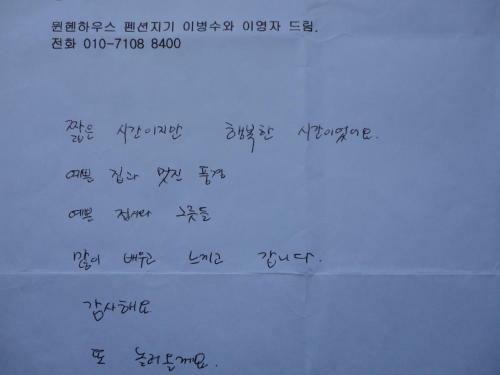 뮌헨하우스 펜션지기 이병수와 이영자 드림.
전화 010-7108 8400
짧은 시간이지만 행복한 시간이었어요.
예쁜 집과 멋진 풍경
예쁜 접시와 그릇들
많이 배우고 느끼고 갑니다.
감사해요
또 놀러올께요.